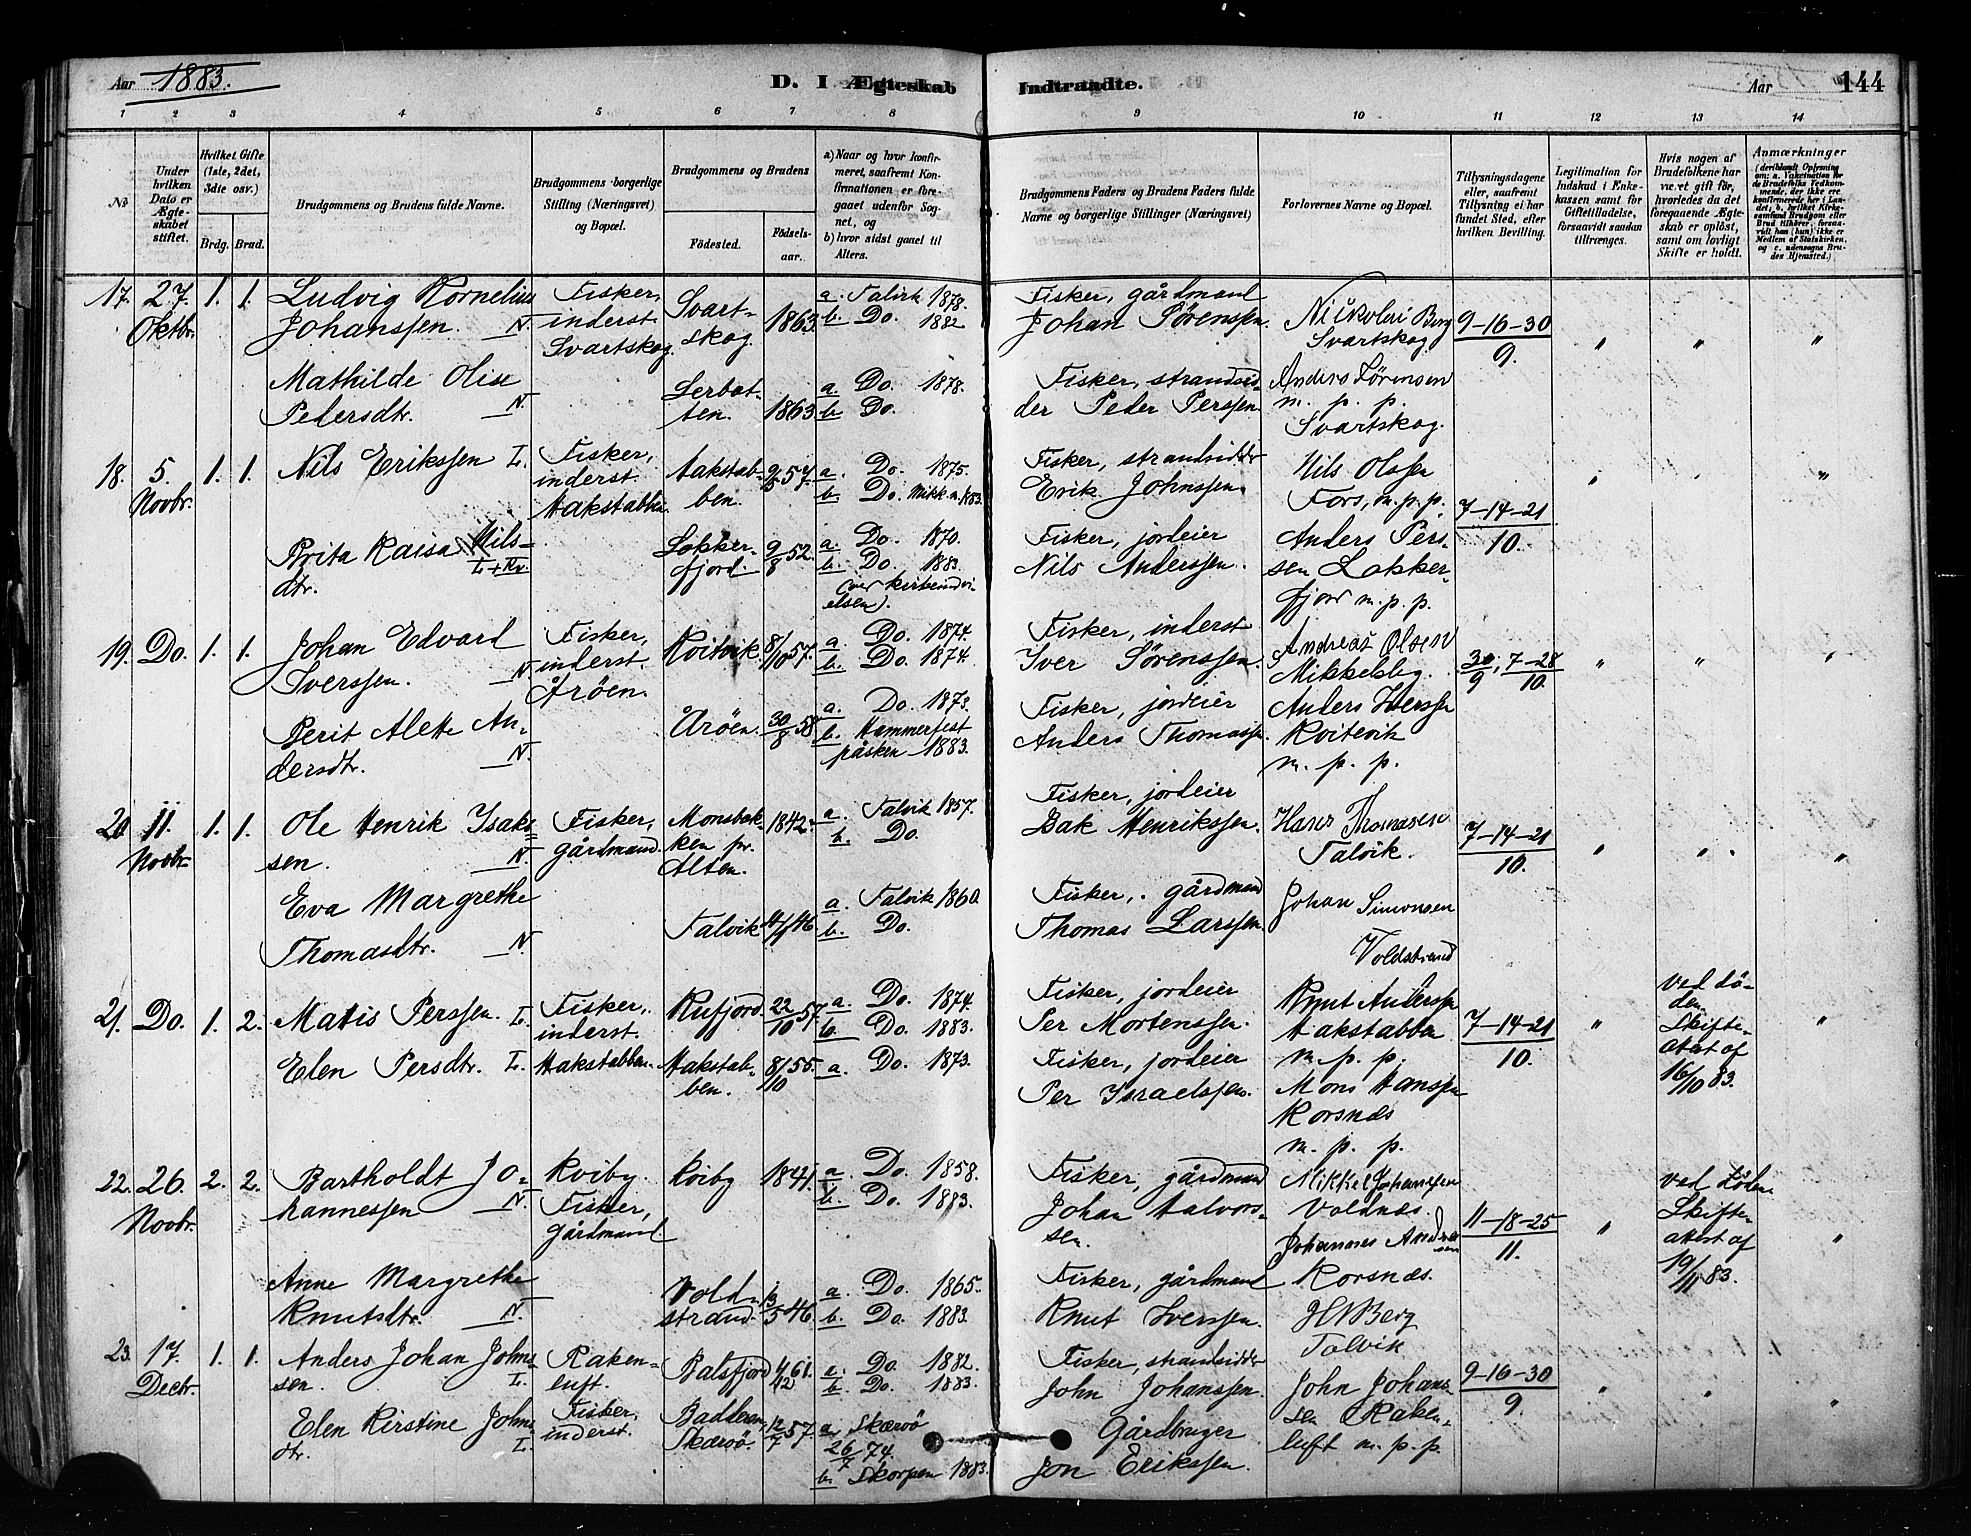 Aar 1883.
D. I Ægteskab Indtraadte.
Aar 144
1 2 3 4 5 6 7 8 9 10 11 12 13 14
No
Under hvilken Dato er Ægteskabet stiftet.
Hvilket Gifte (1ste, 2det, 3die osv.)
Brdg. Brud.
Brudgommens og Brudens fulde Navne.
Brudgommens borgerlige Stilling (Næringsvei) og Bopæl.
Brudgommens og Brudens
Fødested. Fødselsaar.
a) Naar og hvor konfirmeret, saafremt Konfirmationen er foregaaet udenfor Sognet, og
b) hvor sidst gaaet til Alters.
Brudgommens Faders og Brudens Faders fulde Navne og borgerlige Stillinger (Næringsvei)
Forlovernes Navne og Bopæl.
Tillysningsdagene eller, saafremt Tillysning ei har fundet Sted, efter hvilken Bevilling.
Legitimation for Indskud i Enkekassen samt for Giftetilladelse, forsaavidt saadan tiltrænges.
Hvis nogen af Brudefolkene har været gift før, hvorledes da det foregaaende Ægteskab er opløst, samt om lovligt Skifte er holdt.
Anmærkninger
17. 27. Oktbr. 1. 1.
Ludvig Kornelius
Johanssen. N.
Fisker,
inderst
Svartskog.
Svart-
skog.
1863.
a. Talvik 1878.
b. Do. 1882.
Fisker, gårdmand
Johan Sørenssen.
Nikolai Berg
Svartskog.
9-16-30
9.
Mathilde Olise
Pedersdtr. N.
Lerbot-
ten.
1863.
a. Do. 1878.
b. Do.
Fisker, strandsid-
der Peder Perssen.
Anders Sørensen
m. p. p.
Svartskog.
18. 5. Novbr. 1. 1.
Nils Erikssen L.
Fisker,
inderst
Hakstabben
Hakstab-
ben.
57.
a. Do. 1875.
b. Do. Mikk.m. 1883.
Fisker, strandsidder
Erik Johnssen.
Nils Olssen
Fors, m. p. p.
7-14-21
10.
Brita Kaisa Nils-
dtr. L + Kv.
Lokker-
fjord.
9/8 52.
a. Do. 1870.
b. Do. 1883.
Fisker, jordeier
Nils Anderssen.
Anders Pers-
sen Lokker-
fjord m. p. p.
19. Do. 1. 1.
Johan Edvard
Iverssen. N.
Fisker,
inderst
Årøen.
Kvitvik
8/10 57.
a. Do. 1874.
b. Do. 1874.
Fisker, inderst
Iver Sørenssen.
Andreas Olsen
Mikkelsby.
30/9, 7-28
10.
Berit Alette An-
dersdtr. N.
Årøen.
30/8 58.
a. Do. 1873.
b. Hammerfest
påsken 1883.
Fisker, jordeier
Anders Thomassen.
Anders Iverssen
Kvitevik
m. p. p.
20. 11. Novbr. 1. 1.
Ole Henrik Isaks-
sen. N.
Fisker,
gårdmand.
Monsbak-
ken pr.
Alten.
1842.
a. Talvik 1857.
b. Do.
Fisker, jordeier
Isak Henrikssen.
Hans Thomassen
Talvik.
7-14-21
10.
Eva Margrethe
Thomasdtr. N.
Talvik
46.
a. Talvik 1860.
b. Do.
Fisker, gårdmand
Thomas Larssen.
Johan Simonsen
Voldstrand
21. Do. 1. 2.
Matis Perssen. L.
Fisker,
inderst.
Kufjord.
22/10 57.
a. Do. 1874.
b. Do. 1883.
Fisker, jordeier
Per Mortenssen.
Knut Anderssen
Hakstabben
m. p. p.
7-14-21
10.
ved Dø-
den
Skifte-
attest af
16/10 83.
Elen Persdtr. L.
Hakstabben.
Hakstab-
ben.
8/10 55.
a. Do. 1873.
Fisker, jordeier
Per Israelssen.
Mons Hanssen
Korsnæs
m. p. p.
22. 26. Novbr. 2. 2.
Bartholdt Jo-
hannessen N.
Kviby.
Fisker,
gårdmand.
Kviby
1841.
a. Do. 1858.
b. Do. 1883.
Fisker, gårdmand
Johan Halvors-
sen.
Mikkel Johanssen
Voldnæs.
Johannes Andreassen
Korsnæs.
11-18-25
11.
ved Døden
Skifte-
attest af
19/11 83.
Anne Margrethe
Knutsdtr. N.
Vold-
strand.
46.
a. Do. 1865.
b. Do. 1883.
Fisker, gårdmand
Knut Iverssen.
23. 17. Decbr. 1. 1.
Anders Johan Johns-
sen. L.
Raken-
luft.
Fisker,
inderst.
Balsfjord
4/12 61.
a. Do. 1882.
b. Do. 1883.
Fisker, strandsidder
John Johanssen.
H N Berg
Talvik
9-16-30
9.
Elen Kirstine Johns-
dtr. L.
Badderen,
Skærvø.
12/7 57.
a. Skærvø
26/7 74.
b. Skorpen 1883.
Gårdbruger
Jon Erikssen.
John Johans-
sen Raken-
luft m. p. p.